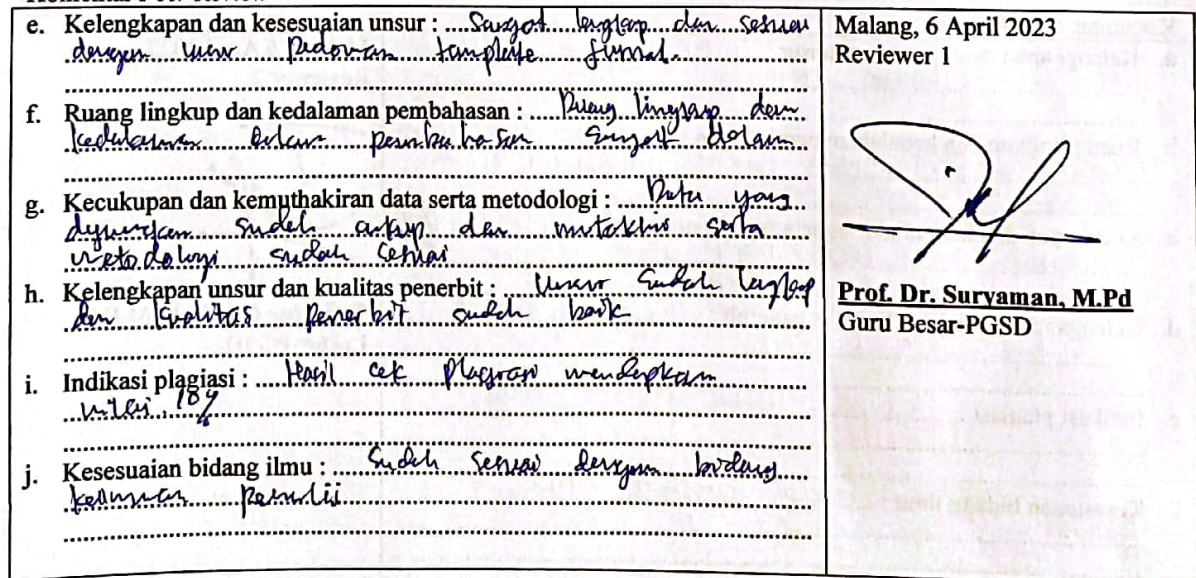 e. Kelengkapan dan kesesuaian unsur : Sangat lengkap dan sesuai
dengan unsur pedoman template jurnal
f. Ruang lingkup dan kedalaman pembahasan : Ruang lingkup dan
kedalaman dalam pembahasan sangat dalam
g. Kecukupan dan kemuthakiran data serta metodologi : Data yang
digunakan sudah cukup dan mutakhir serta
metodologi sudah sesuai
h. Kelengkapan unsur dan kualitas penerbit : Unsur sudah lengkap
dan kualitas penerbit sudah baik
i. Indikasi plagiasi : Hasil cek plagiasi mendapkan
nilai 18%
j. Kesesuaian bidang ilmu : Sudah sesuai dengan bidang
keilmuan penulis
Malang, 6 April 2023
Reviewer 1
Prof. Dr. Suryaman, M.Pd
Guru Besar-PGSD